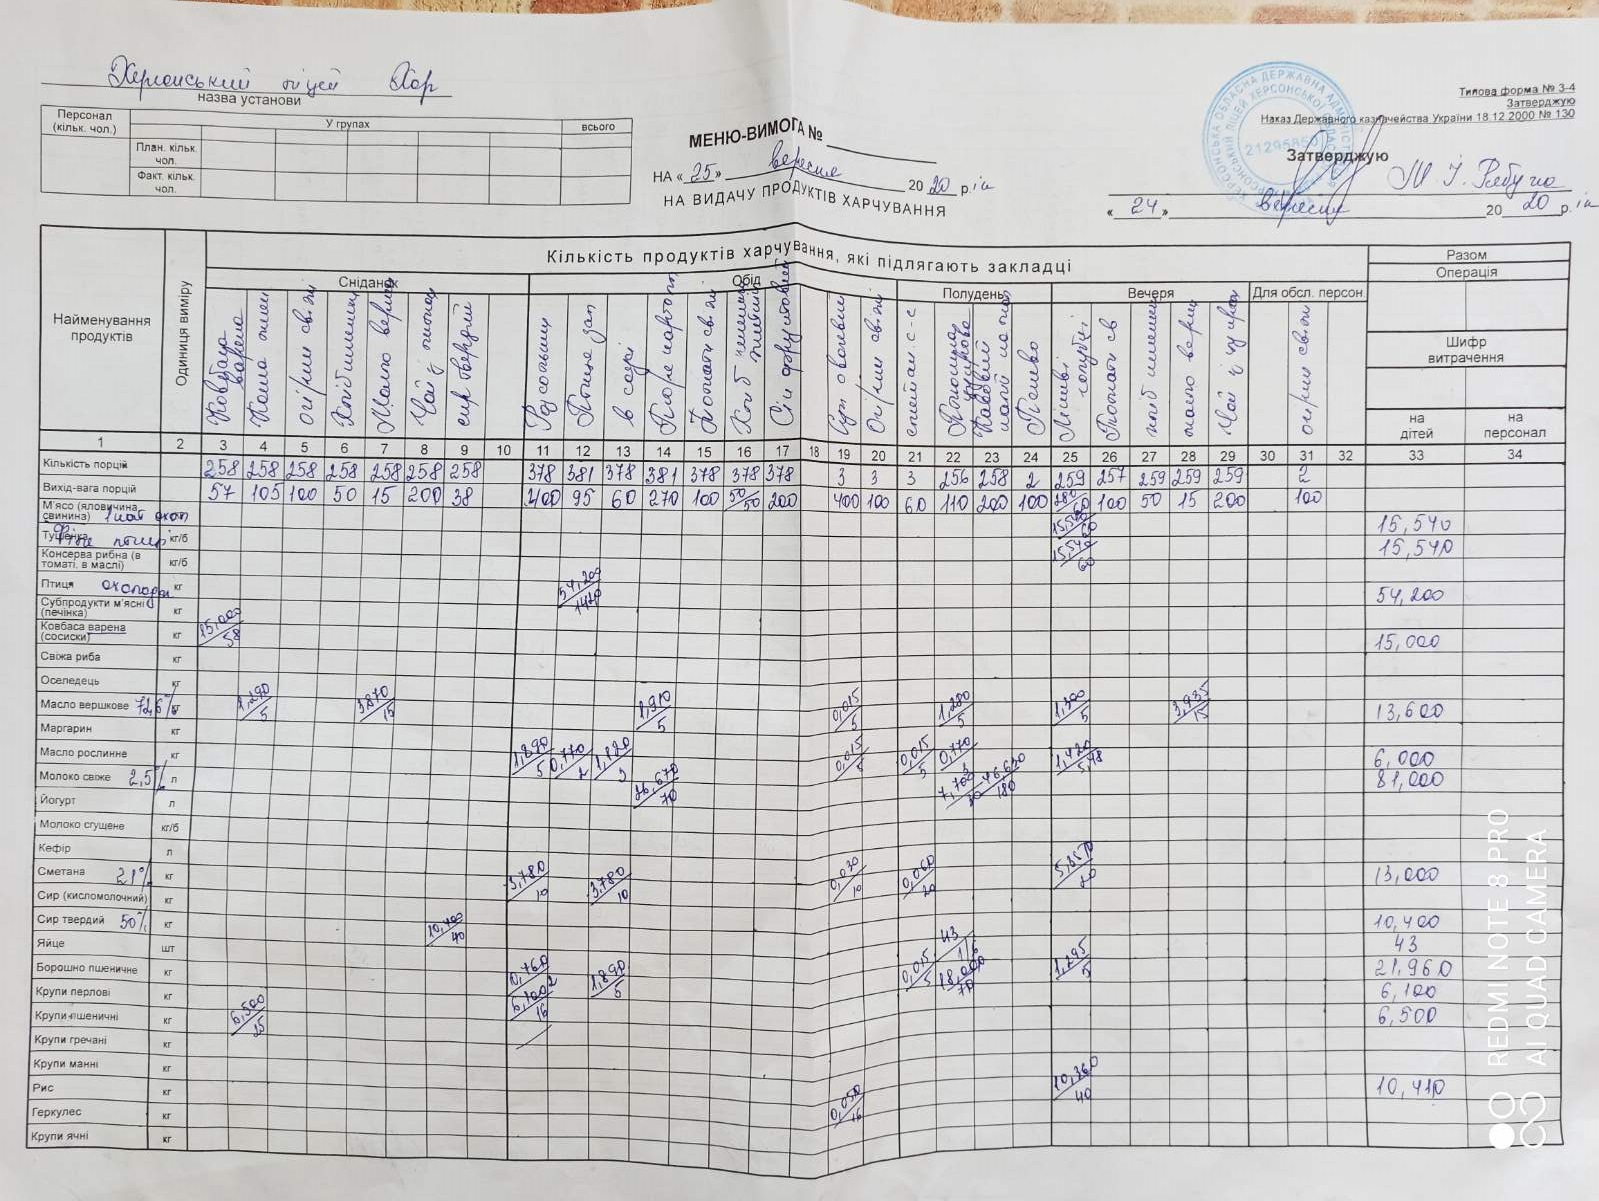 Херсонський ліцей ХОР
назва установи
Типова форма № З-4
Затверджую
Наказ Державного казначейства України 18.12.2000 № 130
Персонал (кільк. чол.)
У групах
всього
План. кільк. чол.
Факт. кільк. чол.
МЕНЮ-ВИМОГА №
НА «25» вересня 2020 р.
НА ВИДАЧУ ПРОДУКТІВ ХАРЧУВАННЯ
21295850
Затверджую
«24» вересня 2020 р.
Найменування продуктів
Одиниця виміру
Кількість продуктів харчування, які підлягають закладці
Разом
Операція
Сніданок
Обід
Полудень
Вечеря
Для обсл. персон.
Шифр витрачення
на дітей
на персонал
Ковбаса варена
Каша пшен
Огірки свіжі
Хліб пшеничн
Масло верш
Чай з лимон
сир твердий
Розсольник
Птиця зап
в соусі
Пюре картоп
Томати свіжі
Суп овочевий
Огірки свіжі
Томати св
хліб пшенич
масло верш
Чай з цукром
огірки свіжі
1 2 3 4 5 6 7 8 9 10 11 12 13 14 15 16 17 18 19 20 21 22 23 24 25 26 27 28 29 30 31 32 33 34
Кількість порцій 258 258 258 258 258 258 258 378 381 378 381 378 378 378 3 3 3 256 258 2 259 257 259 259 259 2
Вихід-вага порцій 57 105 100 50 15 200 38 400 95 60 270 100 50/50 200 400 100 60 110 200 100 280/60 100 50 15 200 100
М'ясо (яловичина, свинина) 15,540/60 15,540
Тушенка кг/б 15,540/60 15,540
Консерва рибна (в томаті, в маслі) кг/б
Птиця охолодж кг 54,200/142 54,200
Субпродукти м'ясні (печінка) кг
Ковбаса варена (сосиски) кг 15,000/58 15,000
Свіжа риба кг
Оселедець кг
Масло вершкове 72,6% кг 1,290/5 3,870/15 1,910/5 0,015/5 1,280/5 1,300/5 3,935/15 13,600
Маргарин кг
Масло рослинне кг 1,890/5 0,770/2 1,120/3 0,015/5 0,015/5 0,770/3 1,420/5,48 6,000
Молоко свіже 2,5% л 26,670/70 7,700/30 46,630/180 81,000
Йогурт л
Молоко сгущене кг/б
Кефір л
Сметана 21% кг 3,780/10 3,780/10 0,030/10 0,060/20 5,350/20 13,000
Сир (кисломолочний) кг
Сир твердий 50% кг 10,400/40 10,400
Яйце шт 43/1/6 43
Борошно пшеничне кг 0,760/2 1,890/5 0,015/5 18,000/70 1,295/5 21,960
Крупи перлові кг 6,100/16 6,100
Крупи пшеничні кг 6,500/25 6,500
Крупи гречані кг
Крупи манні кг
Рис кг 0,050/16 10,360/40 10,410
Геркулес кг
Крупи ячні кг
REDMI NOTE 8 PRO
AI QUAD CAMERA